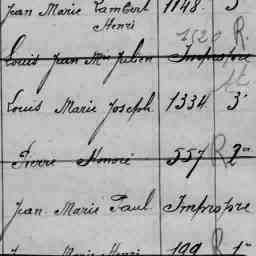 Jean Marie Lambert 1148.
Henri
1520 R.
Louis Jean Mie Julien Impropre
Louis Marie Joseph 1334 3e
Pierre Honoré 557 R 2e
Jean Marie Paul Impropre
Jean Marie Henri 199 R 1e